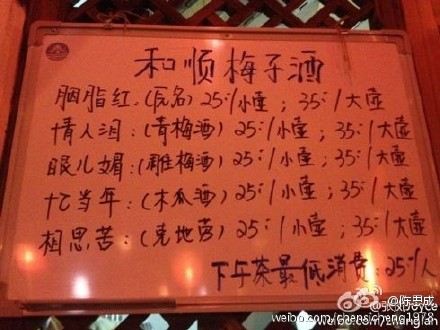 和顺梅子酒
胭脂红:(无名)25:/小壶;35:/大壶
情人泪:(青梅酒)25:/小壶;35:/大壶
眼儿媚:(雕梅酒)25:/小壶;35:/大壶
忆当年:(木瓜酒)25:/小壶;35:/大壶
相思苦:(芫地劳)25:/小壶;35:/大壶
下午茶最低消费:25:/人
@陈思成
weibo.com/chensicheng1978